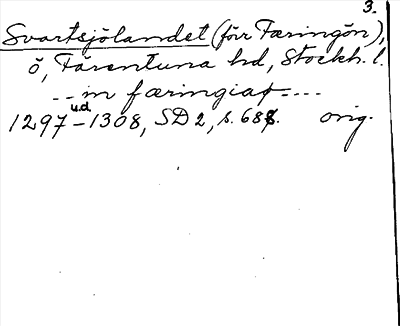 3.
Svartsjölandet (förr Færingön),
ö, Färentuna hd, Stockh. l.
-- in færingiaø- ---
u.d.
1297-1308, SD 2, s. 688. orig.